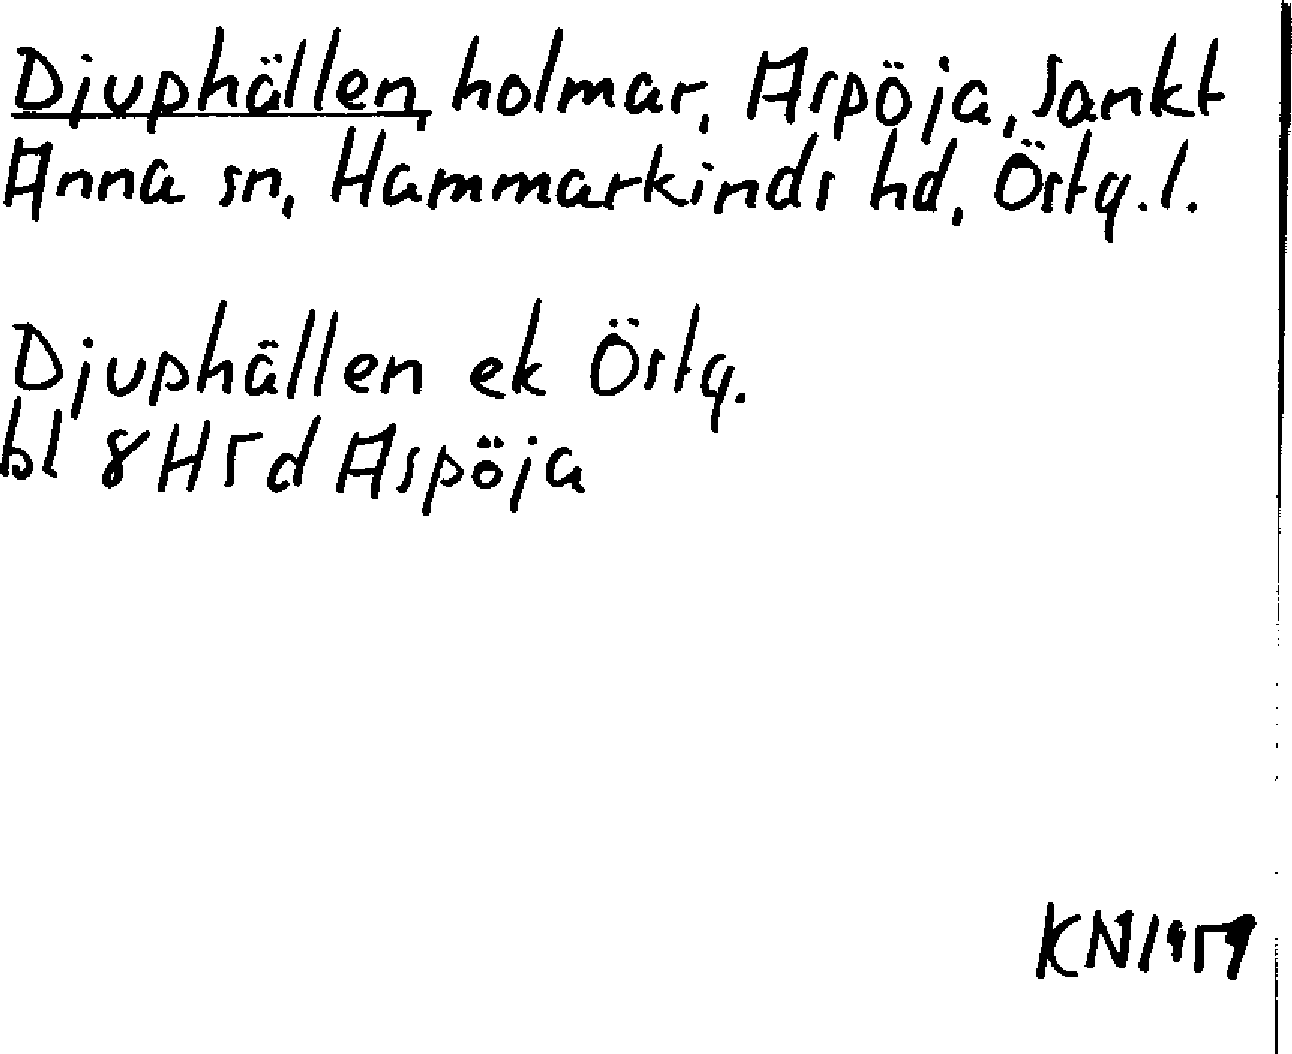 Djuphällen, holmar, Aspöja, Sankt
Anna sn, Hammarkinds hd, Östg.l.
Djuphällen ek Östg.
bl 8H5d Aspöja
KN1959